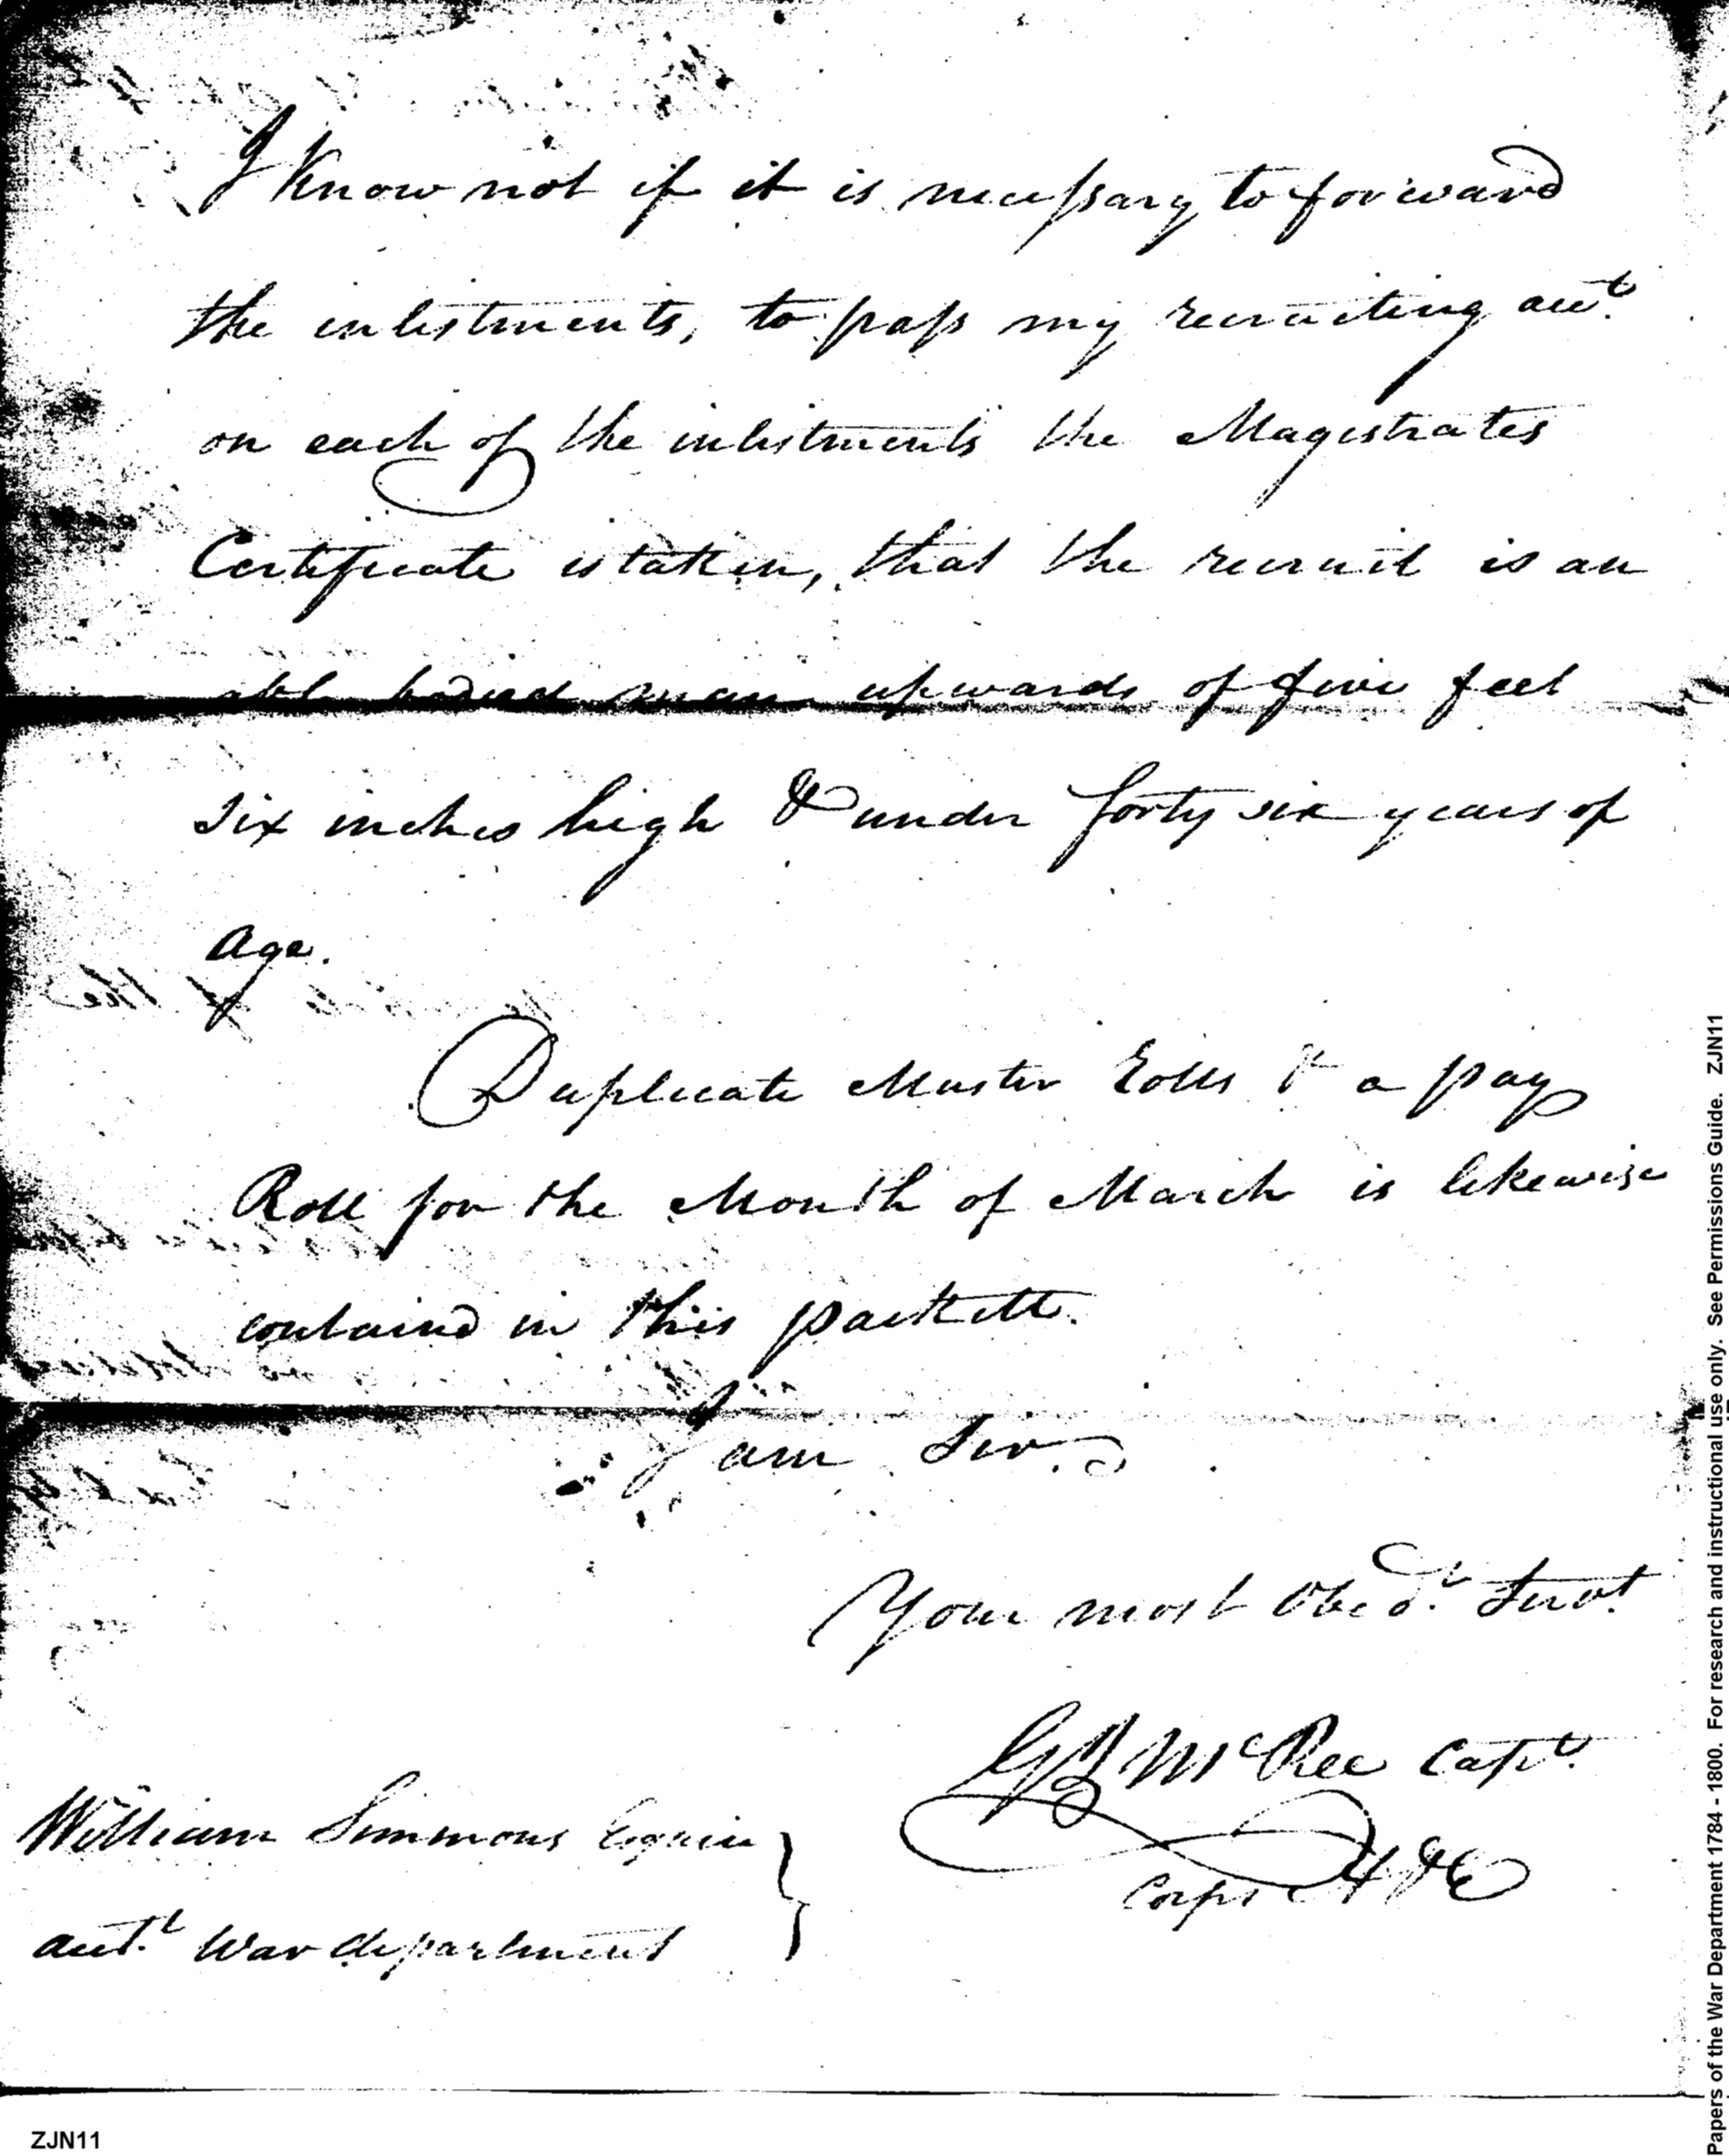 I know not if it is necessary to forward
the inlistments, to pass my recruiting acct.
on each of the inlistments the Magistrates
Certificate is taken, that the recruit is an
able bodied man upwards of five feet
six inches high & under forty six years of
Age.
Duplicate Muster Rolls & a pay
Roll for the Month of March is likewise
containd in this packett.
I am Sir.
Your most Obedt. Servt.
McRee Capt.
Corps A & E
William Simmons Esquire
acct. War department
ZJN11
Papers of the War Department 1784 - 1800. For research and instructional use only. See Permissions Guide. ZJN11